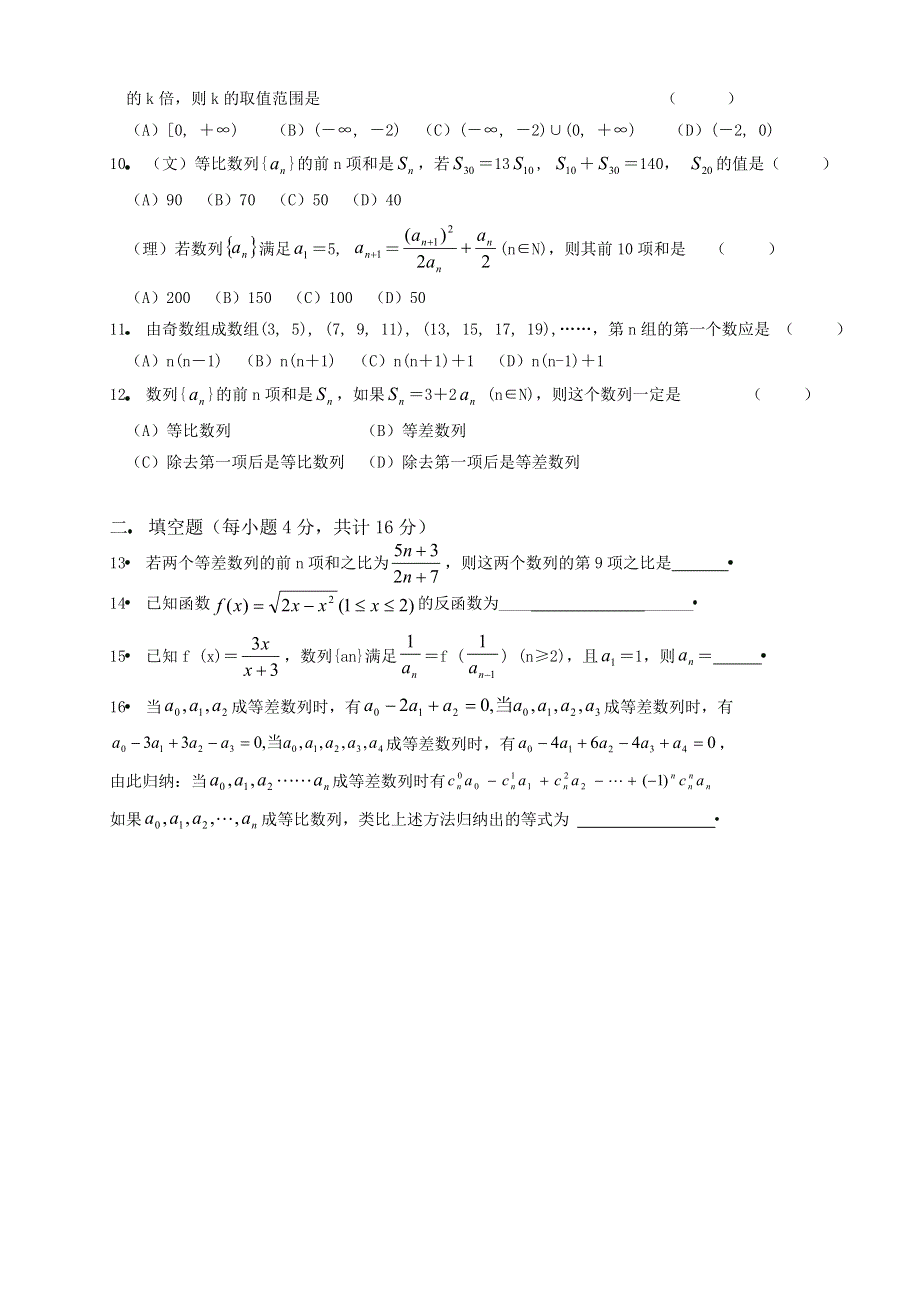 的k倍，则k的取值范围是 （ ）
（A）[0, ＋∞) （B）(－∞, －2) （C）(－∞, －2)∪(0, ＋∞) （D）(－2, 0)
10• （文）等比数列{a_n}的前n项和是S_n，若S_30＝13S_10, S_10＋S_30＝140, S_20的值是（ ）
（A）90 （B）70 （C）50 （D）40
（理）若数列{a_n}满足a_1＝5, a_{n+1}＝(a_{n+1})^2/2a_n + a_n/2 (n∈N)，则其前10项和是 （ ）
（A）200 （B）150 （C）100 （D）50
11• 由奇数组成数组(3, 5), (7, 9, 11), (13, 15, 17, 19),……，第n组的第一个数应是 （ ）
（A）n(n－1) （B）n(n＋1) （C）n(n＋1)＋1 （D）n(n-1)＋1
12• 数列{a_n}的前n项和是S_n，如果S_n＝3＋2a_n (n∈N)，则这个数列一定是 （ ）
（A）等比数列 （B）等差数列
（C）除去第一项后是等比数列 （D）除去第一项后是等差数列
二• 填空题（每小题4分，共计16分）
13• 若两个等差数列的前n项和之比为(5n+3)/(2n+7)，则这两个数列的第9项之比是_______•
14• 已知函数f(x)=√(2x−x^2)(1≤x≤2)的反函数为________________________•
15• 已知f (x)＝3x/(x+3)，数列{an}满足1/a_n＝f (1/a_{n−1}) (n≥2)，且a_1＝1，则a_n＝______•
16• 当a_0,a_1,a_2成等差数列时，有a_0−2a_1+a_2=0,当a_0,a_1,a_2,a_3成等差数列时，有
a_0−3a_1+3a_2−a_3=0,当a_0,a_1,a_2,a_3,a_4成等差数列时，有a_0−4a_1+6a_2−4a_3+a_4=0，
由此归纳：当a_0,a_1,a_2……a_n成等差数列时有c_n^0a_0−c_n^1a_1+c_n^2a_2−⋯+(−1)^nc_n^na_n
如果a_0,a_1,a_2,⋯,a_n成等比数列，类比上述方法归纳出的等式为 _________________•